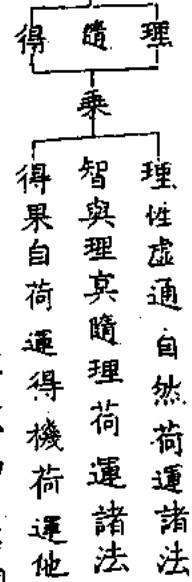 理
隨
得
乘
理性虛通自然荷運諸法
智與理冥隨理荷運諸法
得果自荷運得機荷運他